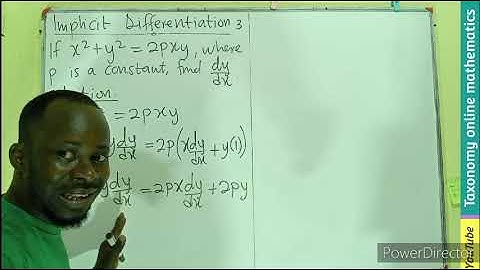 Implicit Differentiation 3
If x² + y² = 2pxy, where
p is a constant, find dy/dx
= 2pxy
y dy/dx = 2p(x dy/dx + y(1))
y dy/dx = 2px dy/dx + 2py
Taxonomy online mathematics
YouTube
PowerDirector